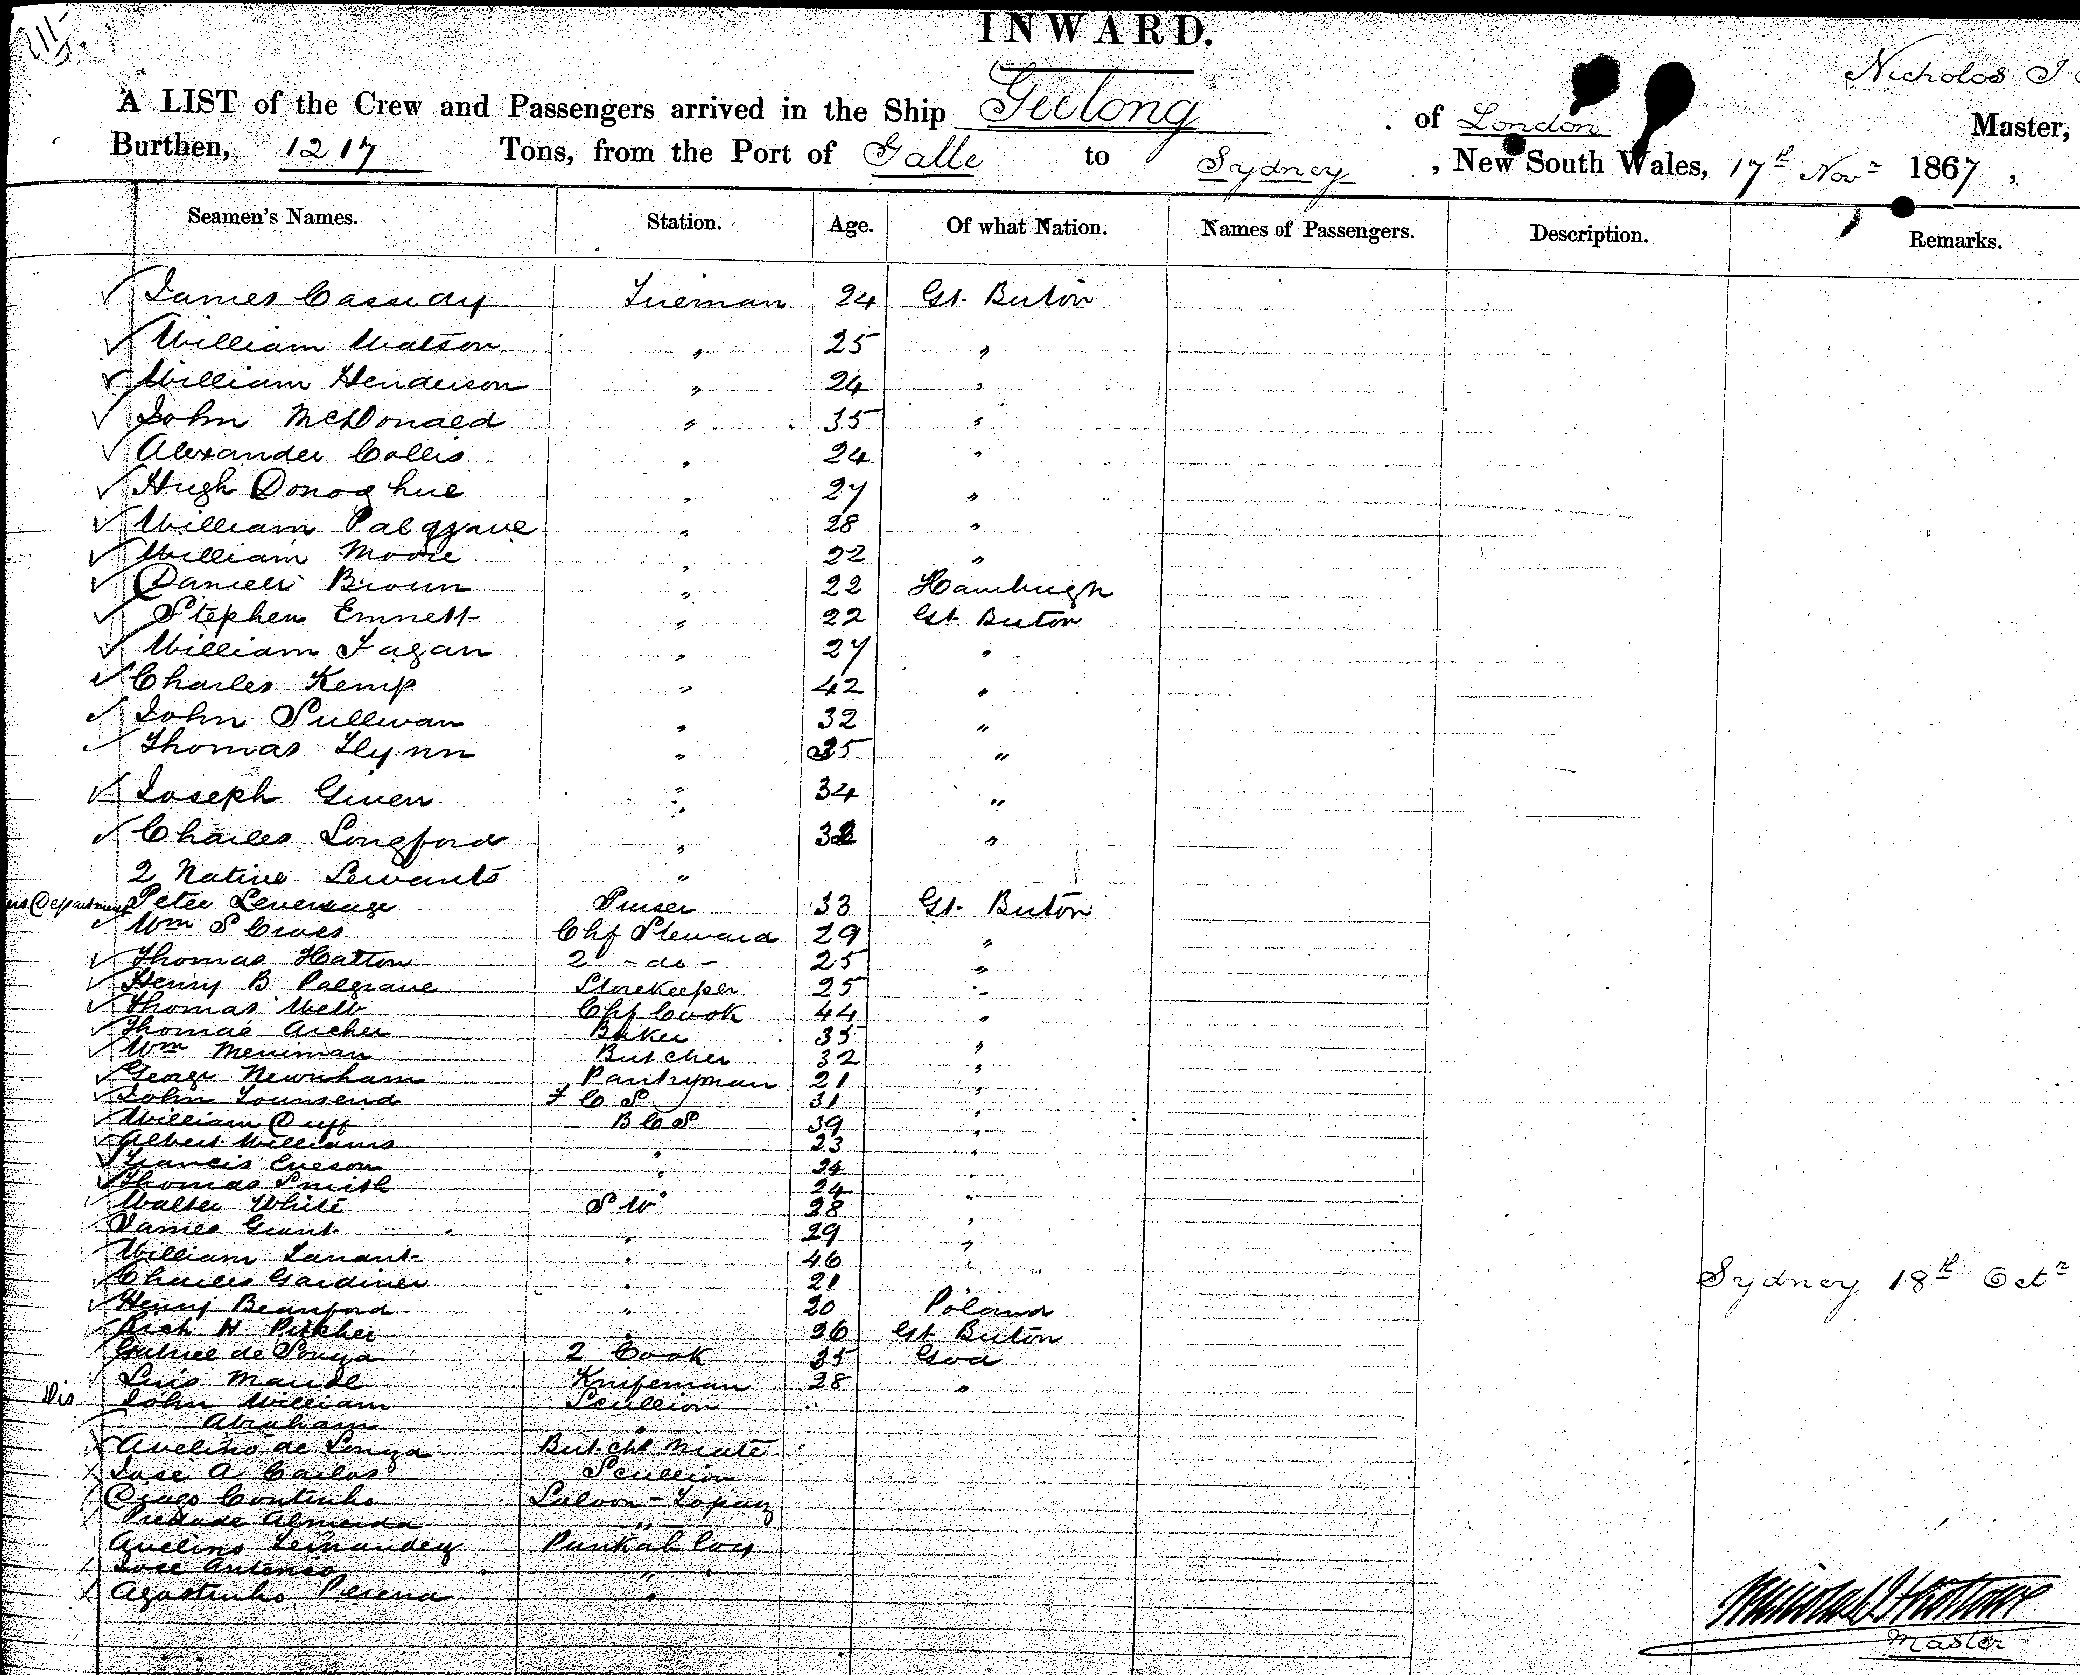 INWARD.
Nicholas J
A LIST of the Crew and Passengers arrived in the Ship Geelong of London Master,
Burthen, 1217 Tons, from the Port of Galle to Sydney, New South Wales, 17th Novr 1867,
Seamen's Names. Station. Age. Of what Nation. Names of Passengers. Description. Remarks.
James Cassidy Fireman 24 Gt. Britain
William Watson " 25 "
William Henderson " 24 "
John McDonald " 35 "
Alexander Collis " 24 "
Hugh Donoghue " 27 "
William Palgrave " 28 "
William Moore " 22 "
Daniell Brown " 22 Hamburgh
Stephen Emnett " 22 Gt. Britain
William Fagan " 27 "
Charles Kemp " 42 "
John Sullivan " 32 "
Thomas Flynn " 35 "
Joseph Given " 34 "
Charles Longford " 32 "
2 Native Servants "
Peter Leversage Purser 33 Gt. Britain
Wm S Cross Chf Steward 29 "
Thomas Hatton 2 - do - 25 "
Henry B Palgrave Storekeeper 25 "
Thomas Webb Chf Cook 44 "
Thomas Archer Baker 35 "
Wm Merriman Butcher 32 "
George Newnham Pantryman 21 "
John Townsend F C S 31 "
William Cuff B C S 39 "
Albert Williams " 23 "
Francis Eveson " 24 "
Thomas Smith " 24 "
Walter White S W 28 "
James Grant " 29 "
William Tarrant " 46 "
Charles Gardiner " 21
Sydney 18th Octr
Henry Beauford " 20 Poland
Rich H Pitcher " 26 Gt Britain
Gabriel de Souza 2 Cook 35 Goa
Luis Maude Knifeman 28 "
Dis John William Scullion
Abraham "
Avelino de Souza Butchs Mate
Jose A Carlos Scullion
Diago Coutinho Saloon - Topaz
Piedade Almeida "
Avelino Fernandez Punkah boy
Jose Antonio "
Agostinho Pereira "
Master